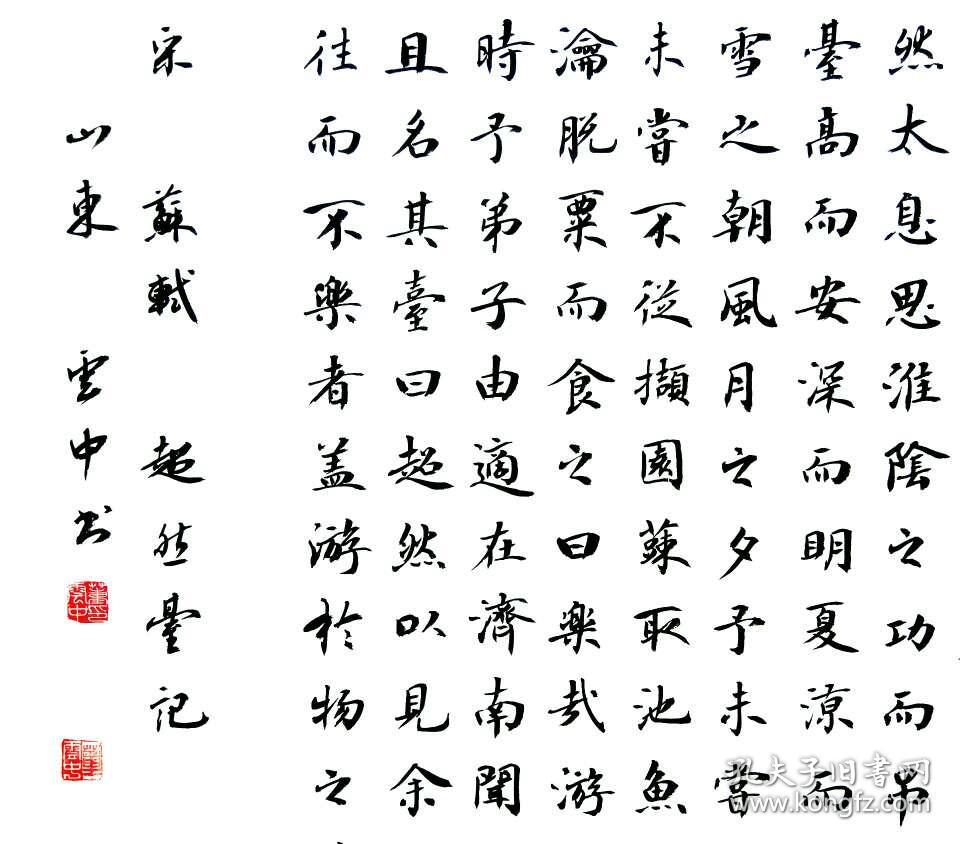 然太息思淮陰之功而弔
臺高而安深而明夏涼而
雪之朝風月之夕予未嘗
未嘗不從擷園蔬取池魚
瀹脫粟而食之曰樂哉游
時予弟子由適在濟南聞
且名其臺曰超然以見余
往而不樂者盖游於物之
宋 蘇軾 超然臺記
山東 雲中书
孔夫子旧书网
www.kongfz.com